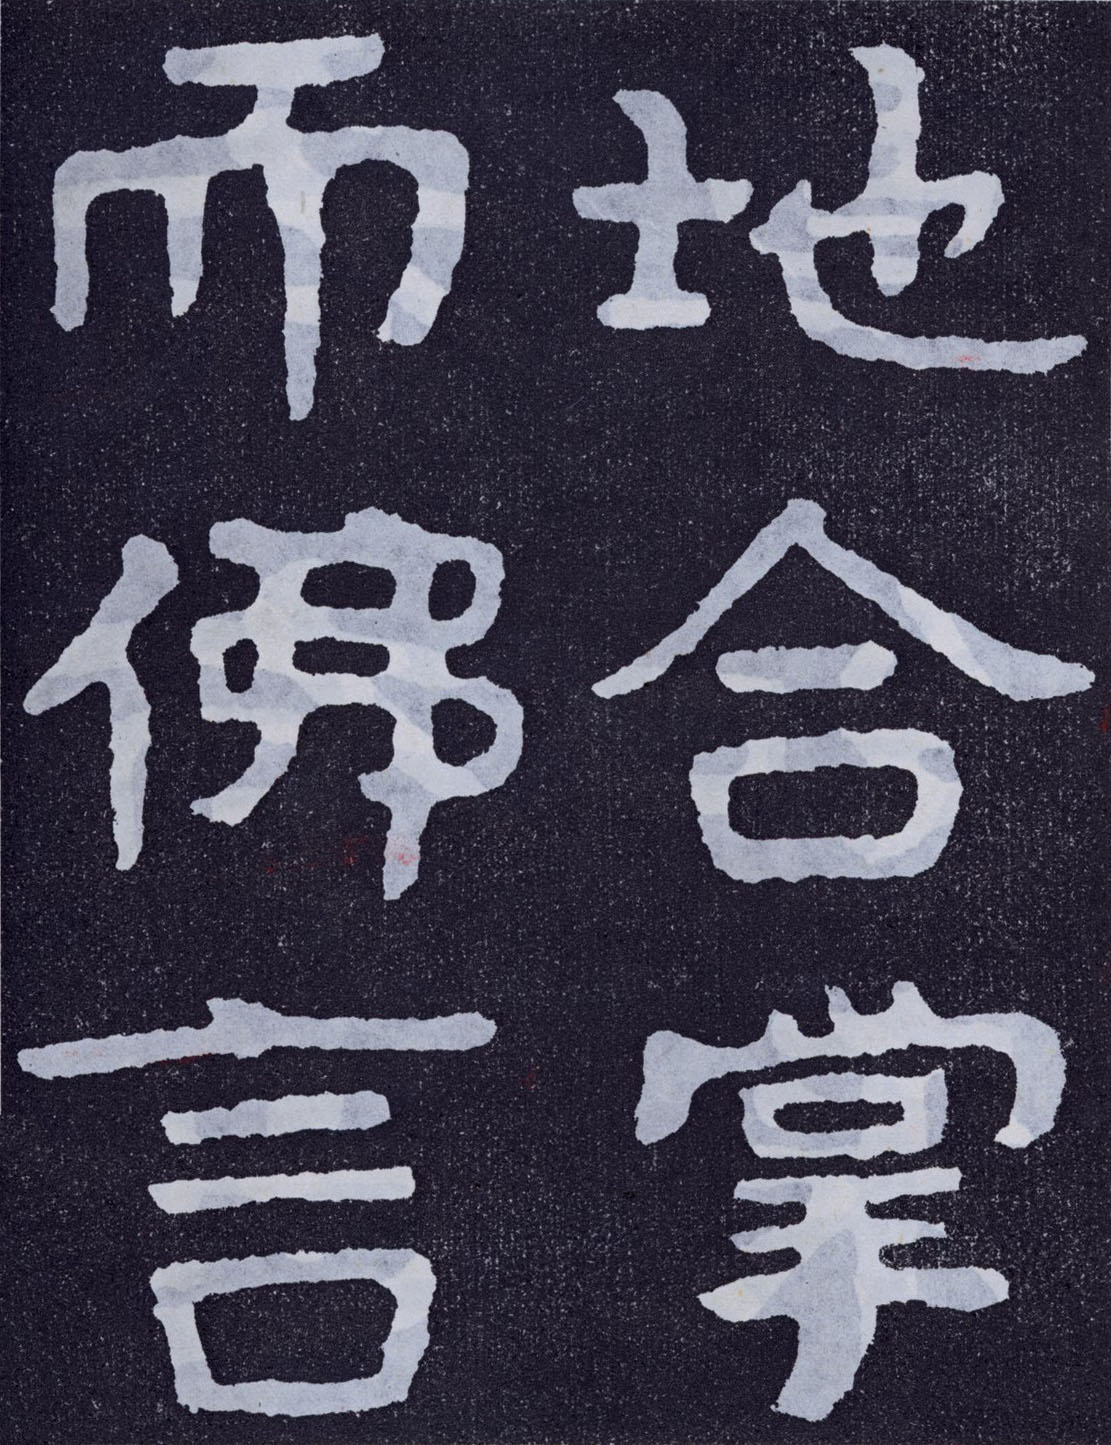 地合掌
而佛言